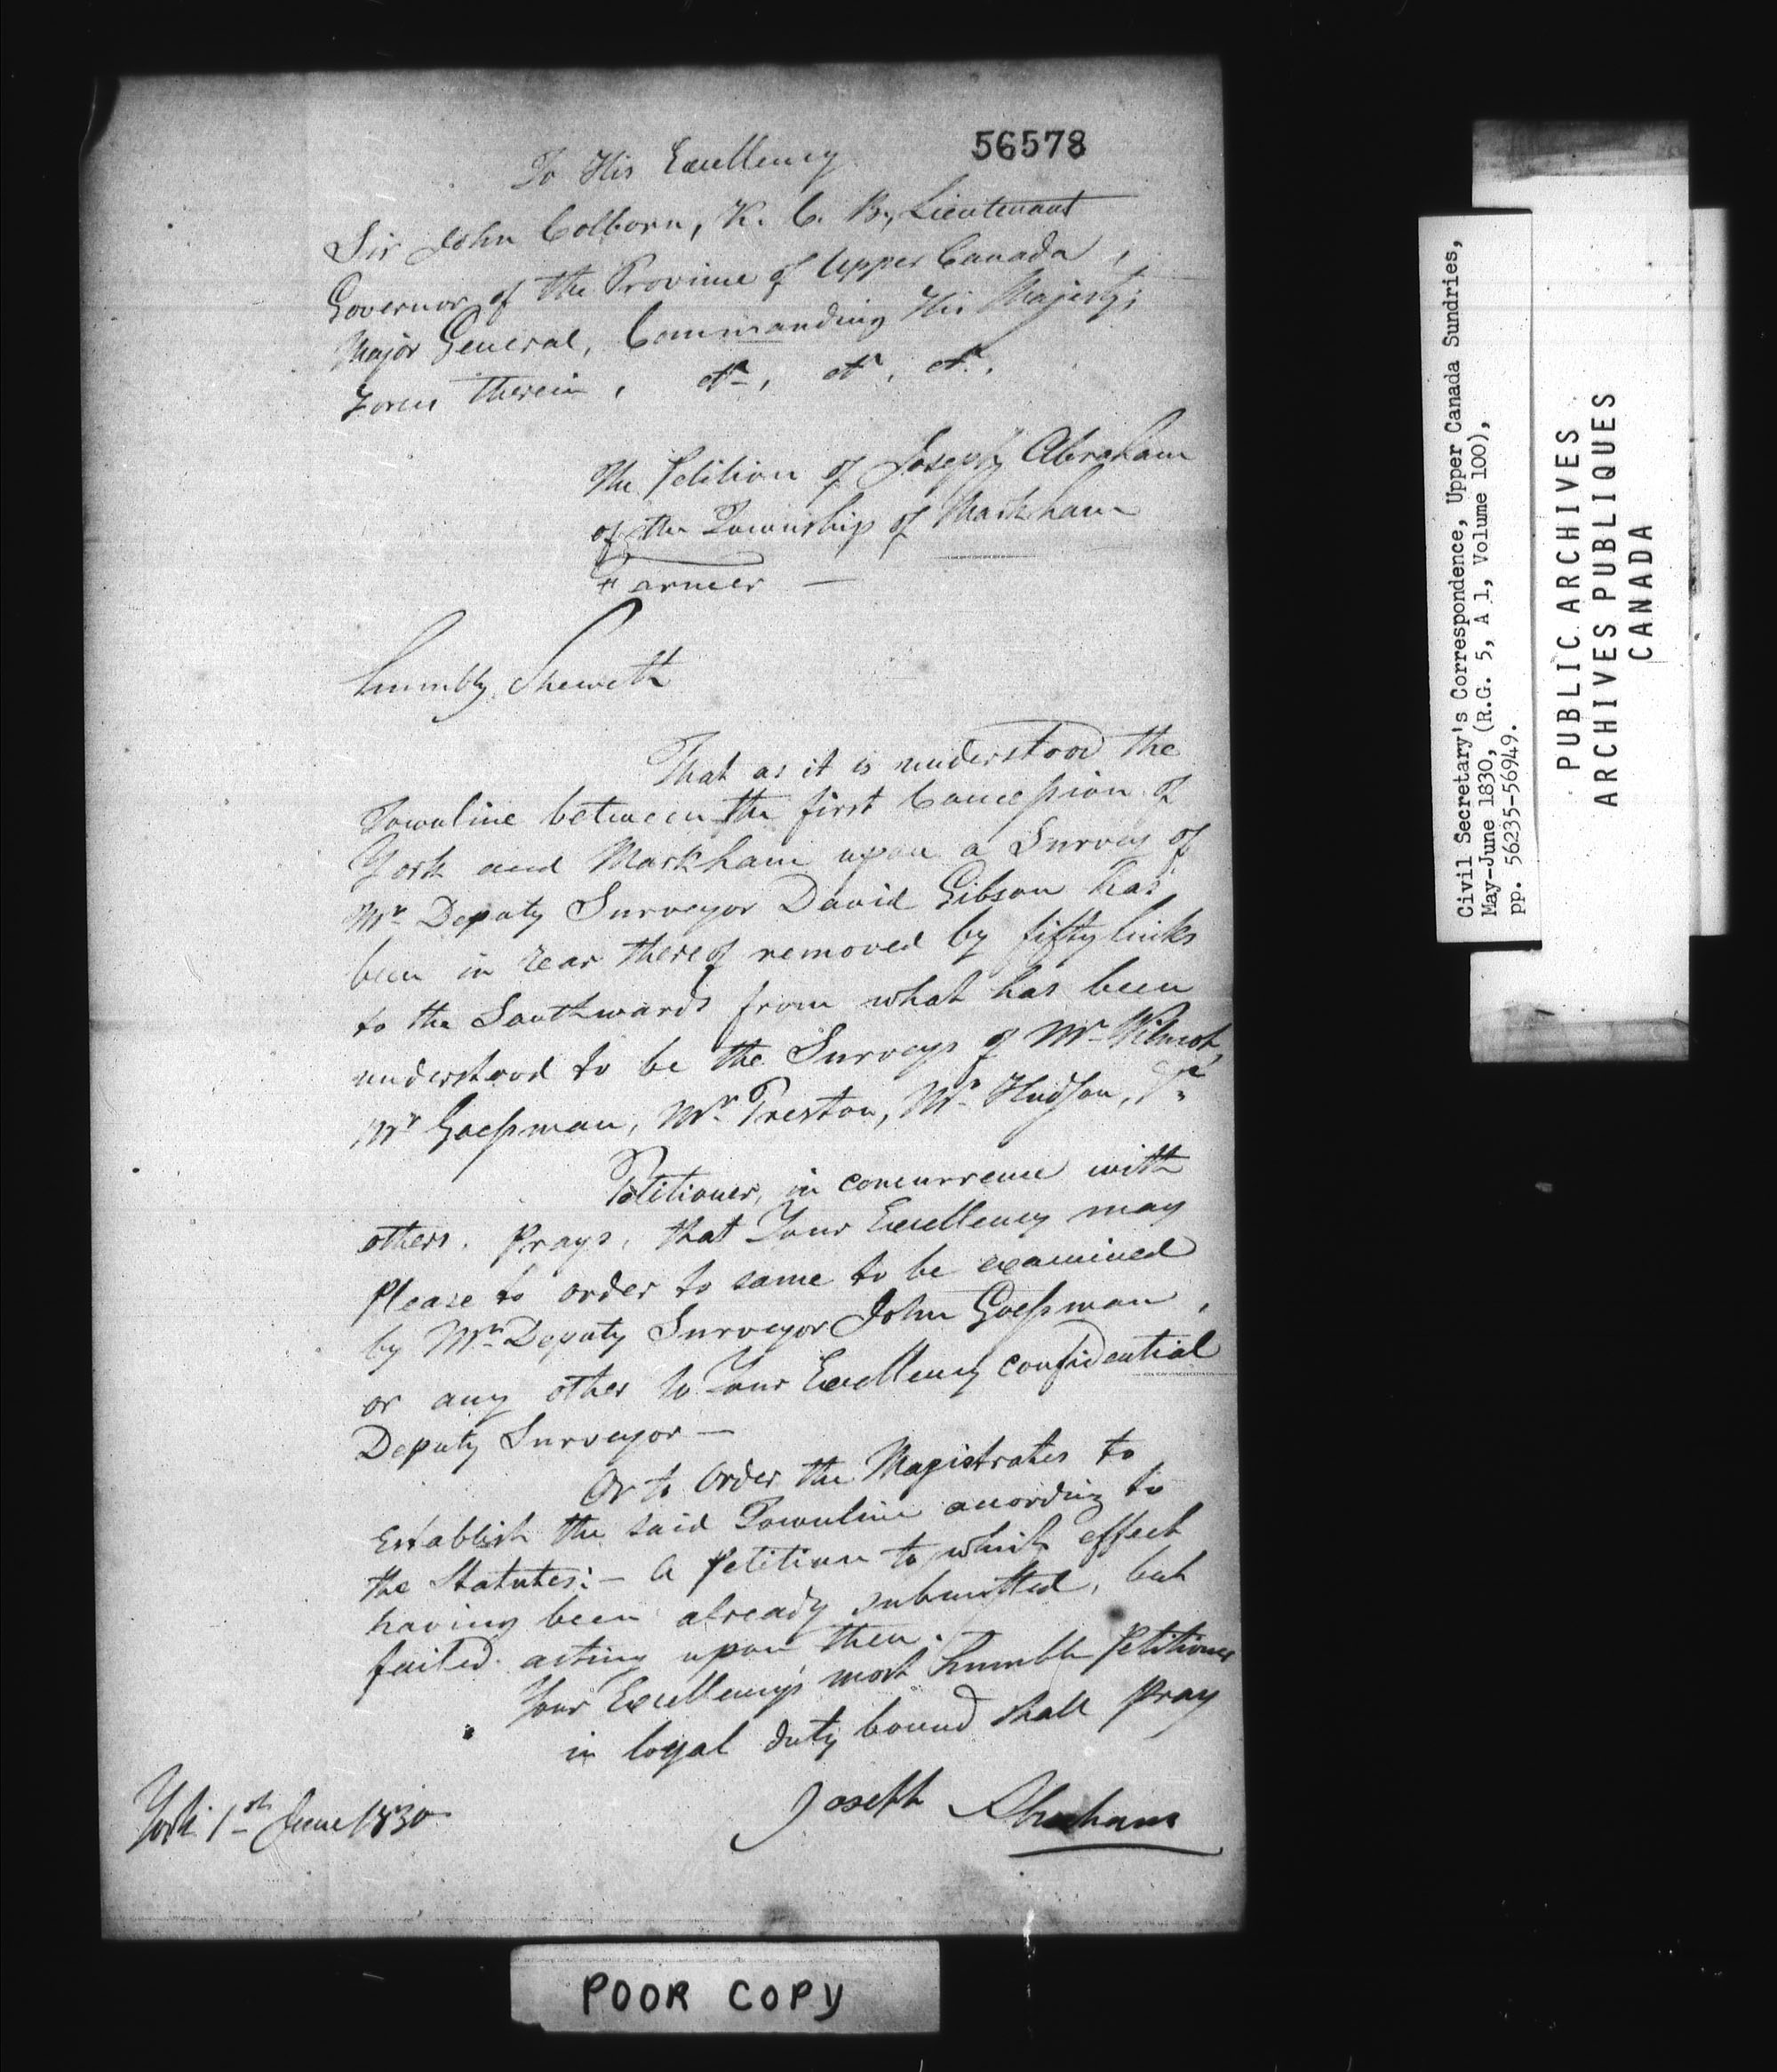 56578
To His Excellency
Sir John Colborn, K. C. B., Lieutenant
Governor of the Province of Upper Canada,
Major General, Commanding His Majesty's
Forces therein, &c, &c, &c.
The Petition of Joseph Abraham
of the Township of Markham
Farmer —
humbly Sheweth
That as it is understood the
Townline between the first Concession of
York and Markham upon a Survey of
Mr Deputy Surveyor David Gibson has
been in rear thereof removed by fifty links
to the Southwards from what has been
understood to be the Surveys of Mr Wilmot,
Mr Goessman, Mr Preston, Mr Hudson,
Petitioner, in concurrence with
others. Prays, that Your Excellency may
Please to order to same to be examined
by Mr Deputy Surveyor John Goessman,
or any other to Your Excellency confidential
Deputy Surveyor —
Or to Order the Magistrates to
Establish the said Townline according to
the Statutes: — A Petition to which effect
having been already submitted, but
failed acting upon then.
Your Excellency's most humble Petitioner
in loyal duty bound shall Pray
Joseph Abraham
York 1st June 1830
POOR COPY
Civil Secretary's Correspondence, Upper Canada Sundries,
May-June 1830, (R.G. 5, A 1, Volume 100),
pp. 56235-56949.
PUBLIC ARCHIVES
ARCHIVES PUBLIQUES
CANADA